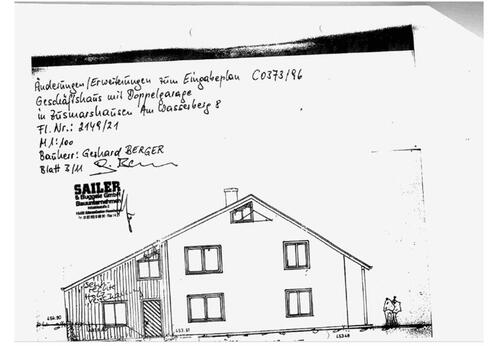 Änderungen/Erweiterungen zum Eingabeplan C0373/96
Geschäftshaus mit Doppelgarage
in Zusmarshausen Am Wasserberg 8
Fl.Nr.: 2149/21
M 1:100
Bauherr: Gerhard BERGER
Blatt 3/11
SAILER
& Buggele GmbH
Bauunternehmen